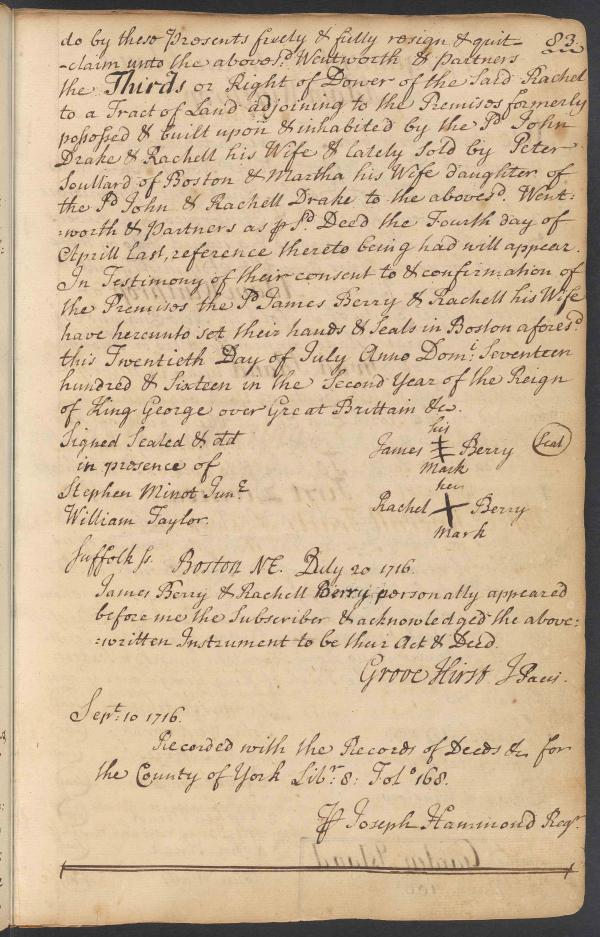 83
do by these Presents freely & fully resign & quit-
-claim unto the aboves.d Wentworth & Partners
the Thirds or Right of Dower of the Said Rachel
to a Tract of Land adjoining to the Premises formerly
possessed & built upon & inhabited by the s.d John
Drake & Rachell his Wife & lately Sold by Peter
Soullard of Boston & Martha his Wife daughter of
the s.d John & Rachell Drake to the aboves.d Went:
:worth & Partners as ꝑ s.d Deed the Fourth day of
Aprill last, reference thereto being had will appear.
In Testimony of their consent to & confirmation of
the Premises the s.d James Berry & Rachell his Wife
have hereunto set their hands & Seals in Boston afores.d
this Twentieth Day of July Anno Dom.i Seventeen
hundred & Sixteen in the Second Year of the Reign
of King George over Great Brittain &c.
Signed Sealed & dd
in presence of
Stephen Minot Jun.r
William Taylor.
his
James Berry Seal
Mark
her
Rachel + Berry
Mark
Suffolk ss. Boston NE. July 20 1716.
James Berry & Rachell Berry personally appeared
before me the Subscriber & acknowledged the above:
:written Instrument to be their Act & Deed.
Grove Hirst J Pacis.
Sept. 10 1716.
Recorded with the Records of Deeds &c for
the County of York Lib.r 8: Fol.o 168.
ꝑ Joseph Hammond Reg.r